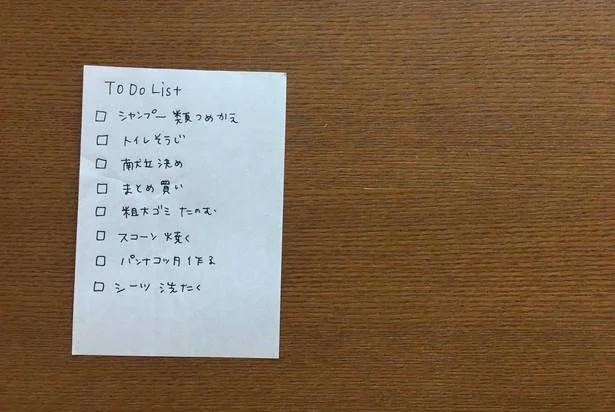 TO Do List
□ シャンプー類つめかえ
□ トイレそうじ
□ 献立決め
□ まとめ買い
□ 粗大ゴミ たのむ
□ スコーン焼く
□ パンナコッタ作る
□ シーツ 洗たく